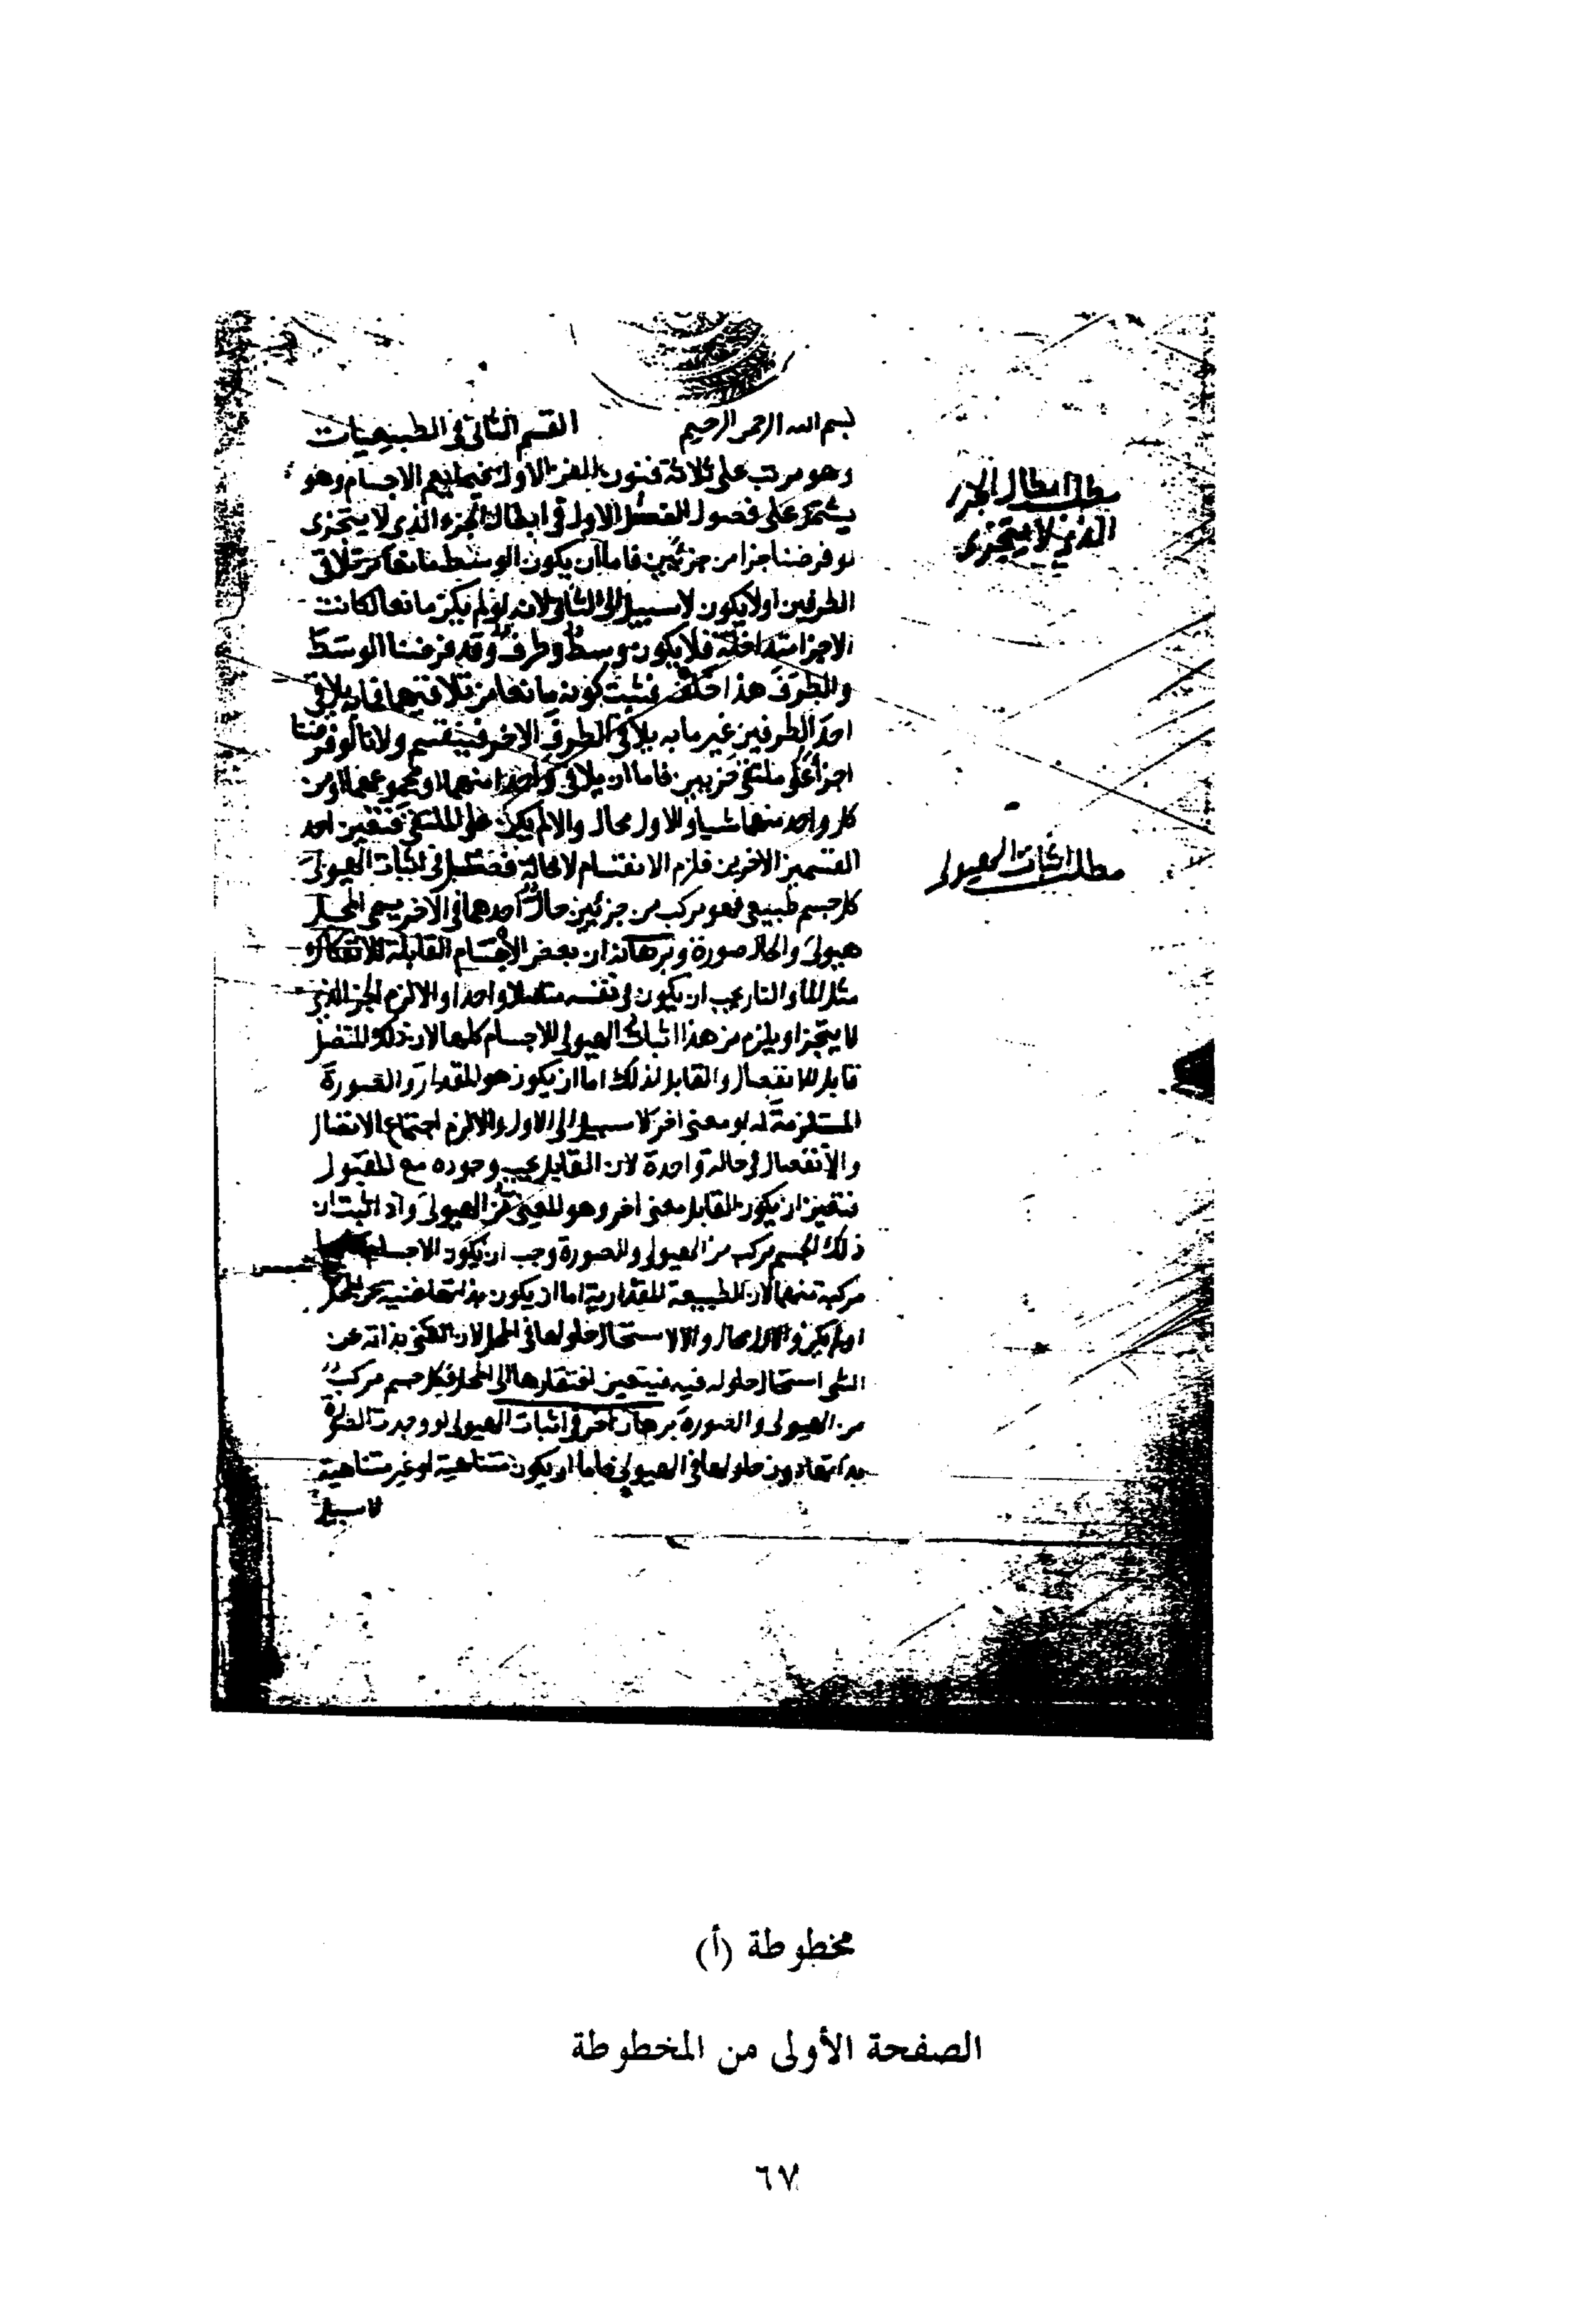 بسم الله الرحمن الرحيم القسم الثاني في الطبيعيات
وهو مرتب على ثلاثة فنون الفن الاول فيما يعم الاجسام وهو
يشتمل على فصول الفصل الاول في ابطال الجزء الذي لا يتجزى
لو فرضنا جزا من جزئين فاما ان يكون الوسط مانعا من تلاقى
الطرفين او لا يكون لا سبيل الى الثاني لانه لو لم يكن مانعا لكانت
الاجزا متداخلة فلا يكون وسط وطرف وقد فرضنا الوسط
والطرف هذا خلف فثبت كونه مانعا من تلاقيهما فما به يلاقى
احد الطرفين غير ما به يلاقى الطرف الاخر فينقسم ولانا لو فرضنا
جزأ على ملتقى جزيين فاما ان يلاقى واحدا منهما او مجموعهما او من
كل واحد منهما شيا والاول محال والا لم يكن على الملتقى فتعين احد
القسمين الاخرين فلزم الانقسام لا محالة فصل في اثبات الهيولى
كل جسم طبيعى فهو مركب من جزئين حال احدهما في الاخر يسمى المحل
هيولى والحال صورة وبرهانه ان بعض الاجسام القابلة للانفكاك
مثل الماء والنار يجب ان يكون في نفسه متصلا واحدا والا لزم الجز الذي
لا يتجزا ويلزم من هذا اثبات الهيولى للاجسام كلها لان ذلك المتصل
قابل للانفصال والقابل لذلك اما ان يكون هو المقدار او الصورة
المستلزمة له او معنى اخر لا سبيل الى الاول والا لزم اجتماع الاتصال
والانفصال في حالة واحدة لان القابل يجب وجوده مع المقبول
فتعين ان يكون القابل معنى اخر وهو المعنى من الهيولى واذ اثبت ان
ذلك الجسم مركب من الهيولى والصورة وجب ان يكون الاجسام
مركبة منهما لان الطبيعة المقدارية اما ان يكون بذاتها غنية عن المحل
او لم يكن والاول محال والا لاستحال حلولها في المحل لان الغنى بذاته عن
الشى استحال حلوله فيه فيتعين افتقارها الى المحل فكل جسم مركب
من الهيولى والصورة برهان اخر في اثبات الهيولى لو وجدت الصورة
بذاتها دون حلولها في الهيولى فاما ان يكون متناهية او غير متناهية
لا سبيل
مطلب ابطال الجزء
الذي لا يتجزى
مطلب اثبات الهيولى
مخطوطة (أ)
الصفحة الأولى من المخطوطة
٦٧